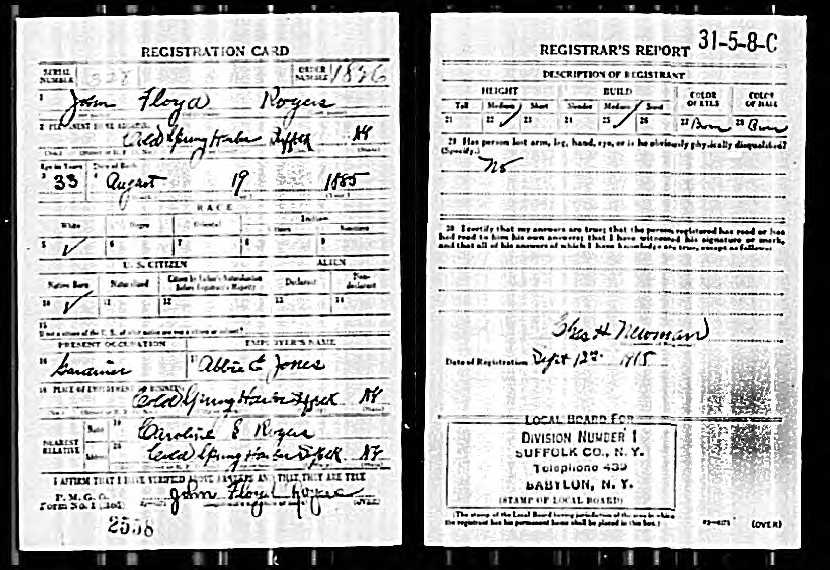 REGISTRATION CARD
SERIAL NUMBER
ORDER NUMBER 1836
1 John Floyd Rogers
2 PERMANENT HOME ADDRESS:
Cold Spring Harbor Suffolk NY
Age in Years Date of Birth
3 33 4 August 19 1885
RACE
White Negro Oriental Indian
Citizen Noncitizen
5 ✓ 6 7 8 9
U. S. CITIZEN ALIEN
Native Born Naturalized Citizen by Father's Naturalization Before Registrant's Majority Declarant Non-declarant
10 ✓ 11 12 13 14
15
If not a citizen of the U. S., of what nation are you a citizen or subject?
PRESENT OCCUPATION EMPLOYER'S NAME
16 Gardiner 17 Abbie E Jones
18 PLACE OF EMPLOYMENT OR BUSINESS:
Cold Spring Harbor Suffolk NY
NEAREST RELATIVE
Name 19 Caroline E Rogers
Address 20 Cold Spring Harbor Suffolk NY
I AFFIRM THAT I HAVE VERIFIED ABOVE ANSWERS AND THAT THEY ARE TRUE
P. M. G. O.
Form No. 1 John Floyd Rogers (OVER)
2558
REGISTRAR'S REPORT 31-5-8-C
DESCRIPTION OF REGISTRANT
HEIGHT BUILD COLOR OF EYES COLOR OF HAIR
Tall Medium Short Slender Medium Stout
21 22 ✓ 23 24 25 ✓ 26 27 Brn 28 Brn
29 Has person lost arm, leg, hand, eye, or is he obviously physically disqualified?
(Specify.)
No
30 I certify that my answers are true; that the person registered has read or has
had read to him his own answers; that I have witnessed his signature or mark,
and that all of his answers of which I have knowledge are true, except as follows:
Chas H Newman
Date of Registration Sept 12th
LOCAL BOARD FOR
DIVISION NUMBER 1
SUFFOLK CO., N. Y.
Telephone 439
BABYLON, N. Y.
(STAMP OF LOCAL BOARD)
(The stamp of the Local Board having jurisdiction of the area in which
the registrant has his permanent home shall be placed in this box.)
(OVER)